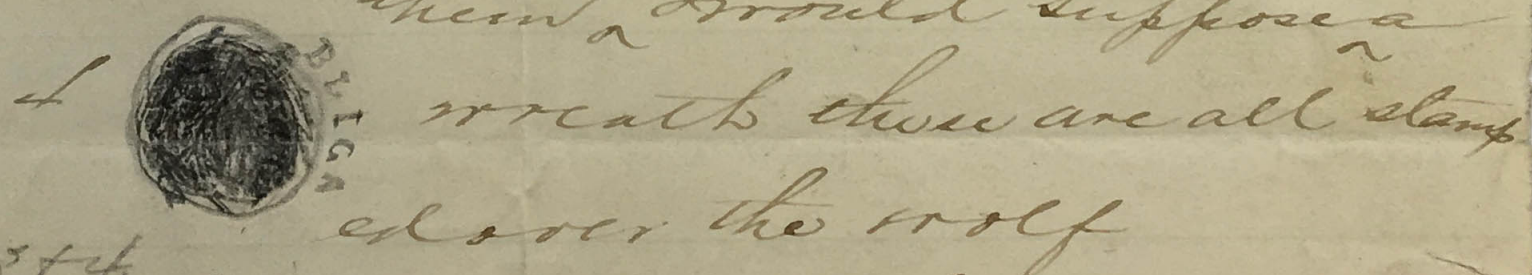 them ^ would suppose ^ a
BLIGA
wreath these are all stamp
ed over the wolf